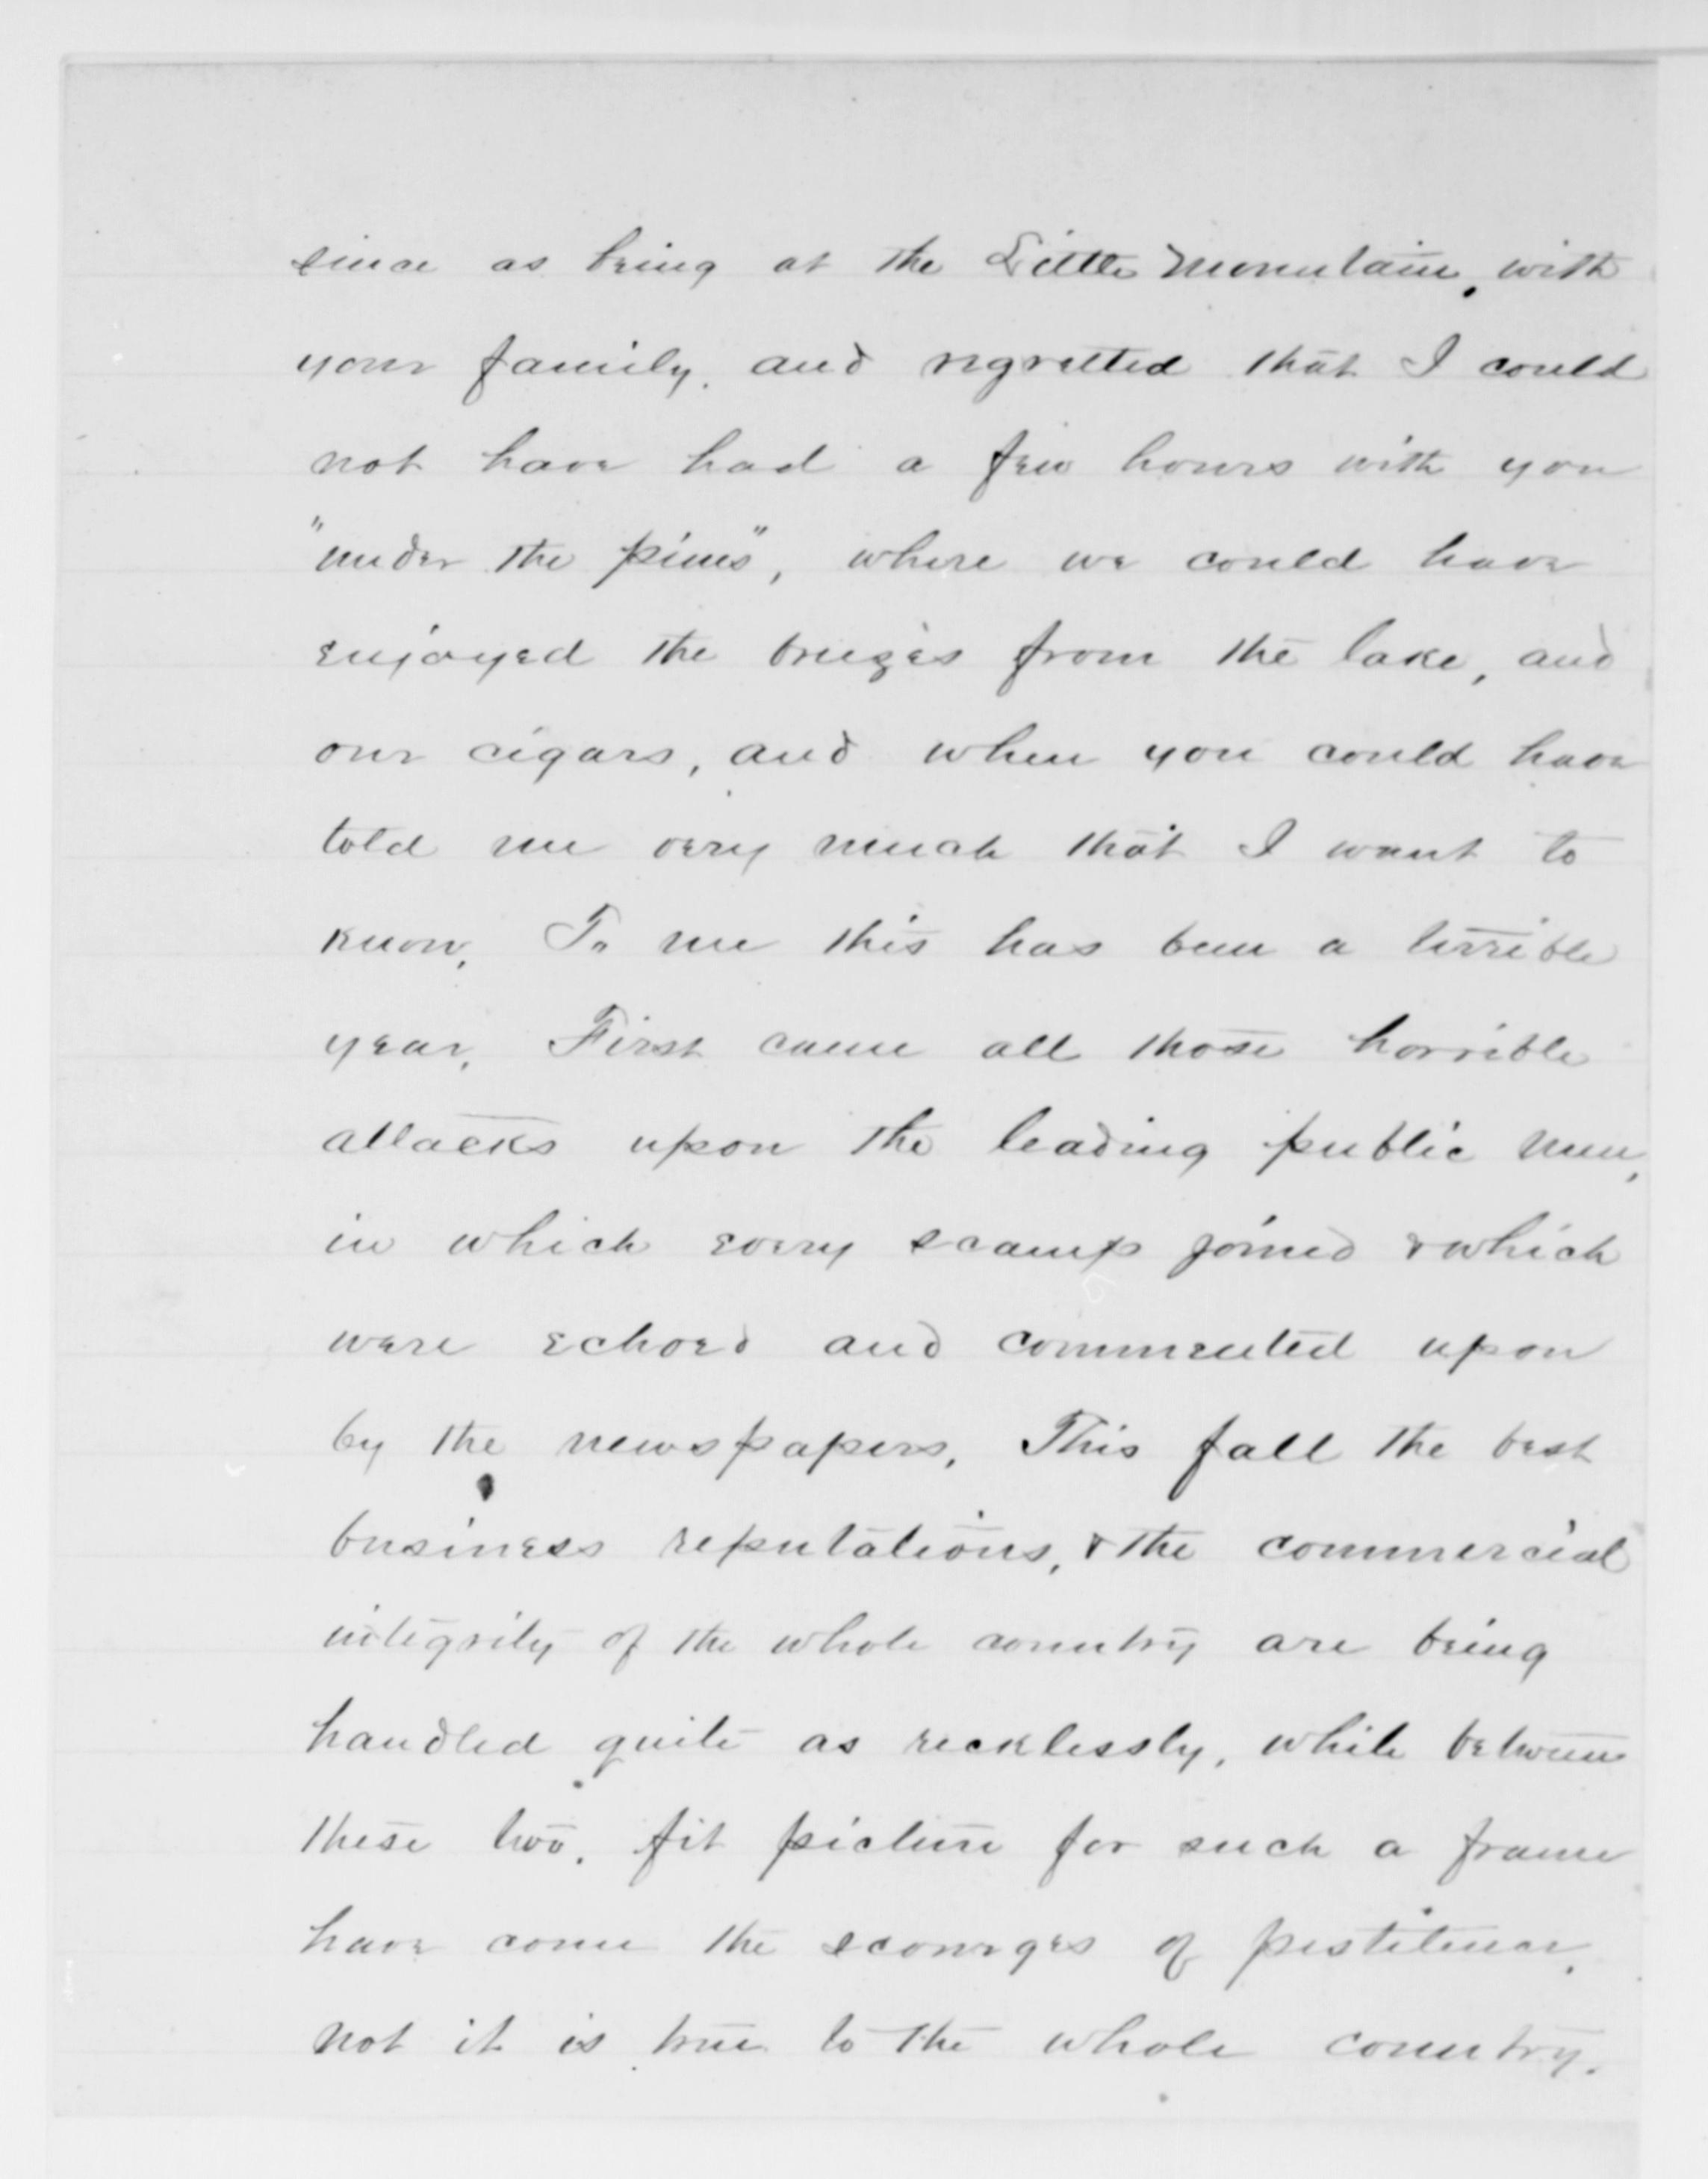 since as being at the Little Mountain, with
your family, and regretted that I could
not have had a few hours with you
"under the pines", where we could have
enjoyed the breezes from the lake, and
our cigars, and when you could have
told me very much that I want to
know. To me this has been a terrible
year. First came all those horrible
attacks upon the leading public men,
in which every scamp joined & which
were echoed and commented upon
by the newspapers. This fall the best
business reputations, & the commercial
integrity of the whole country are being
handled quite as recklessly, while between
these two, fit picture for such a frame
have come the scourges of pestilence,
not it is true to the whole country.